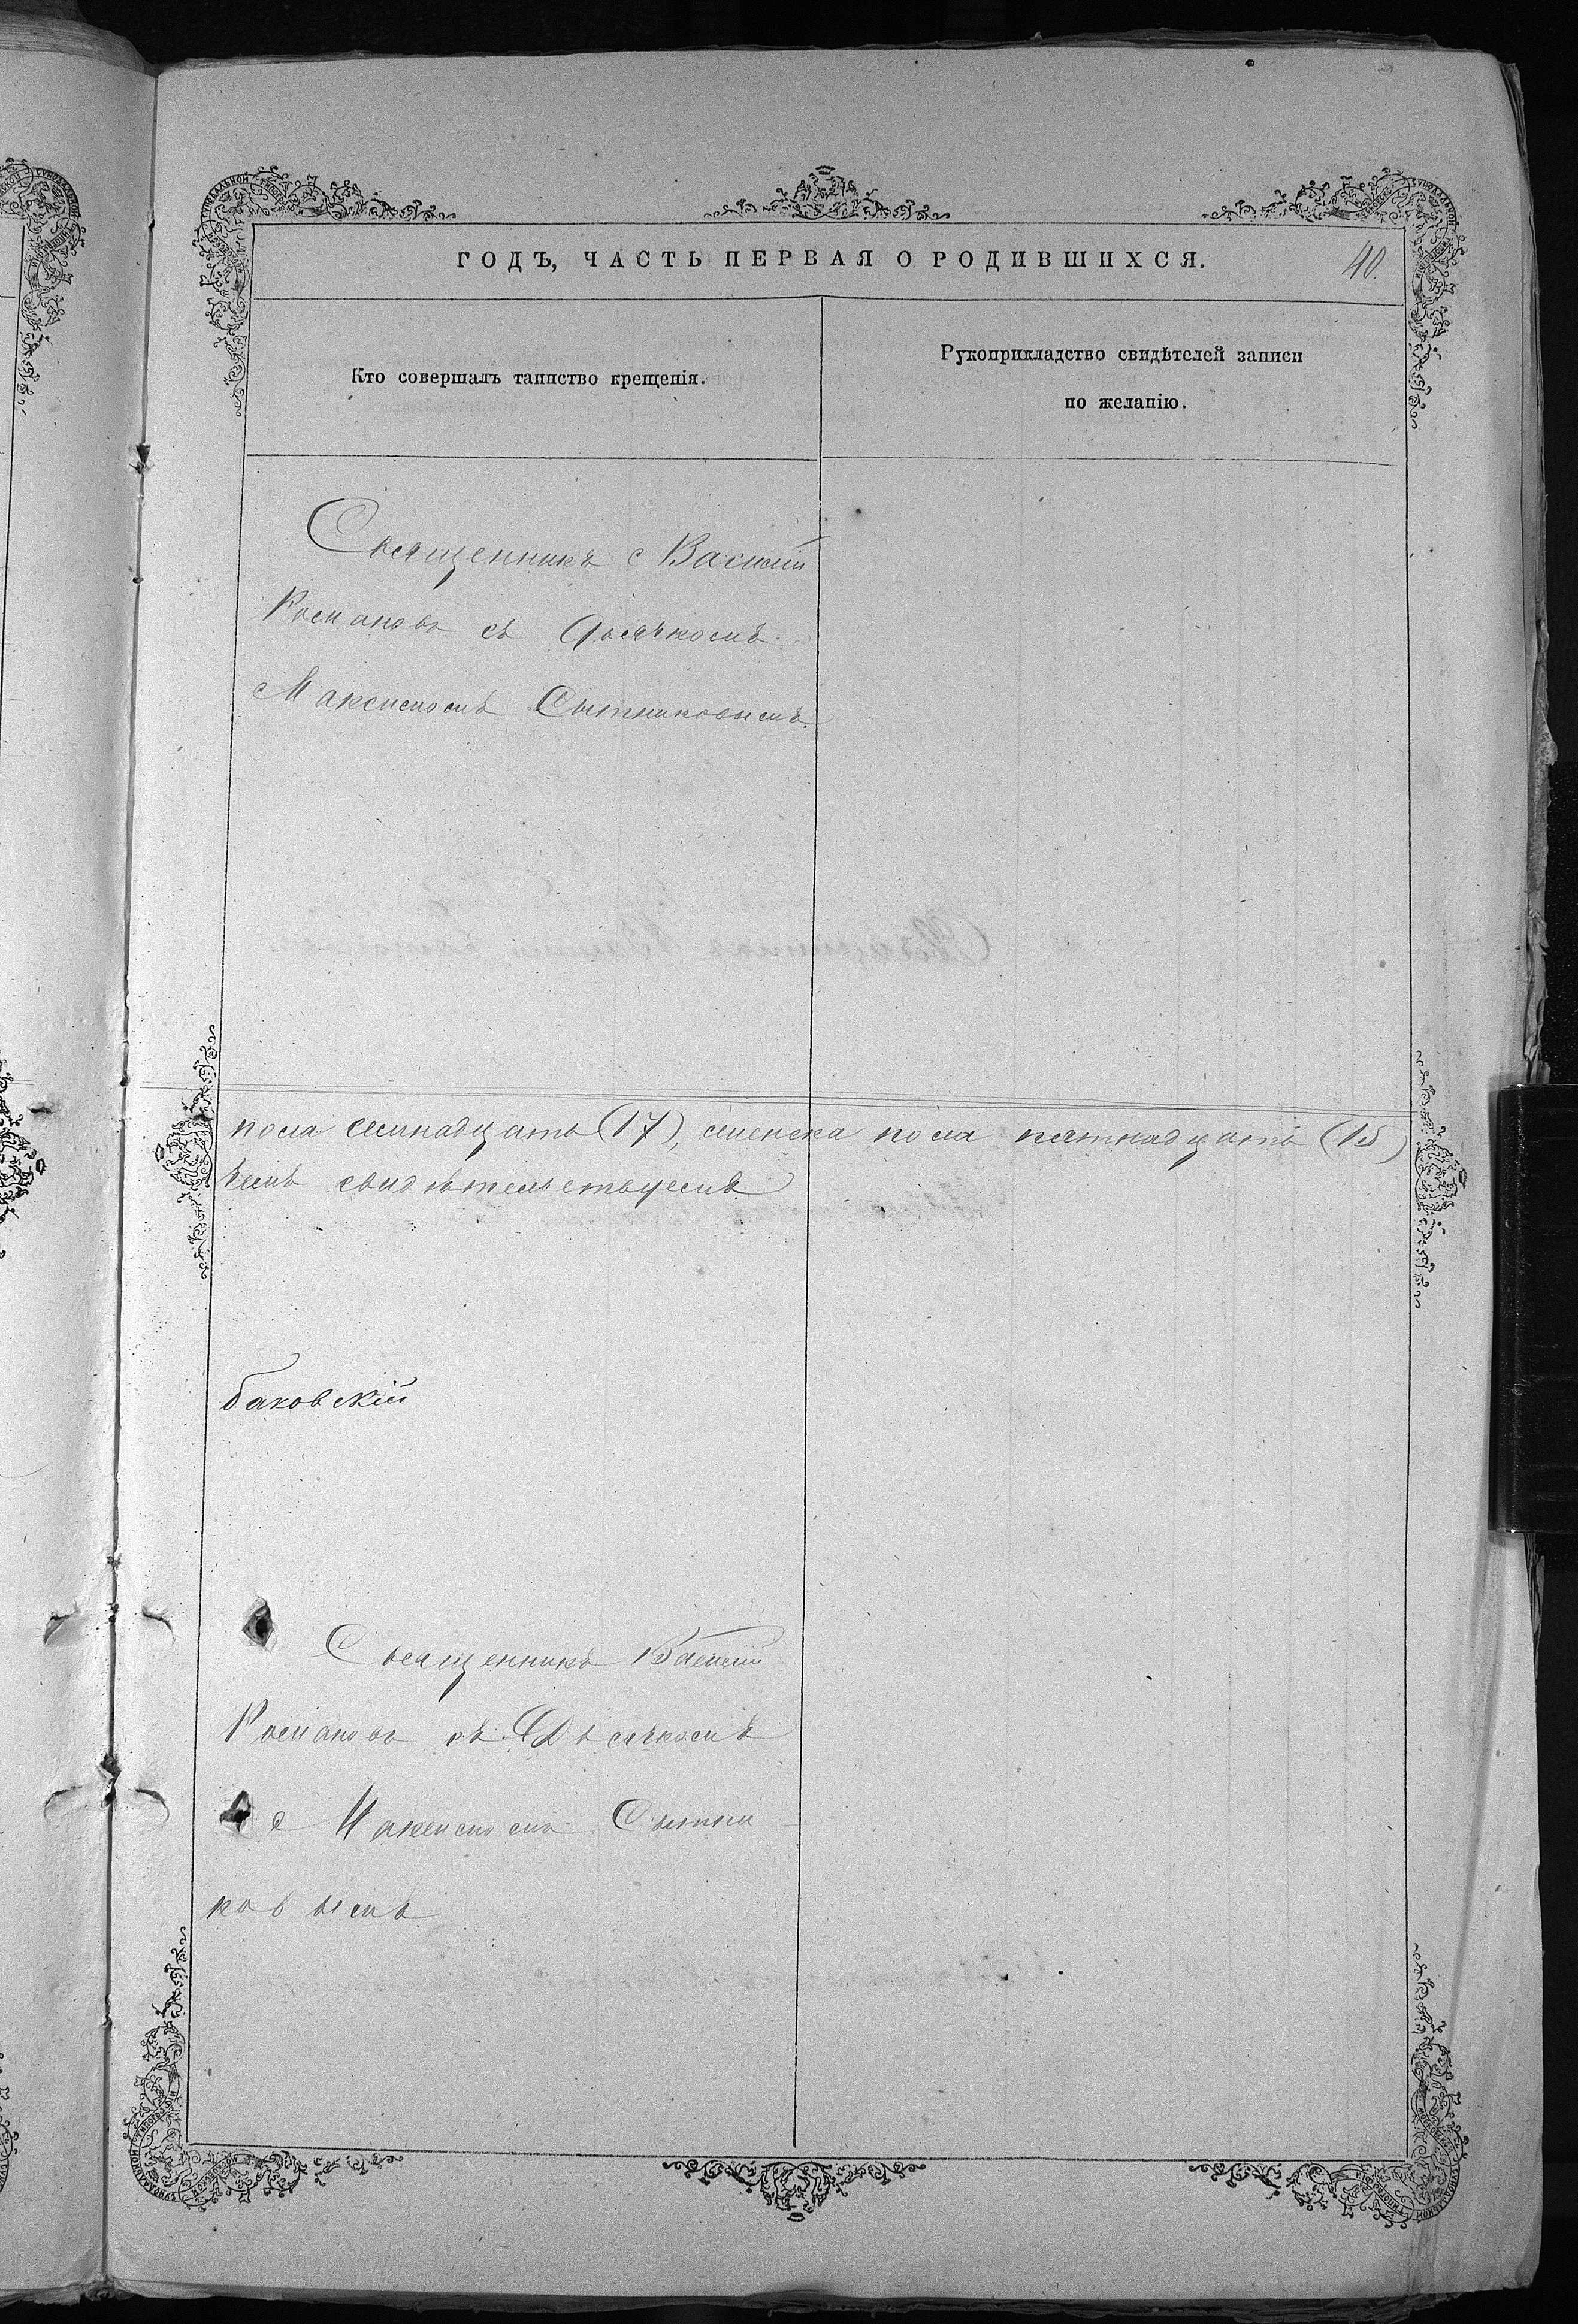 ГОДЪ, ЧАСТЬ ПЕРВАЯ О РОДИВШИХСЯ.
40.
Кто совершалъ таинство крещенія.
Рукоприкладство свидѣтелей записи
по желанію.
Священникъ Василій
Романовъ съ Дьячкомъ
Максимомъ Сытниковымъ.
пола семнадцать (17), женска пола пятнадцать (15)
ѣемъ свидѣтельствуемъ
баковскій
Священникъ Василій
Романовъ съ Дьячкомъ
Максимомъ Сытни
ковымъ